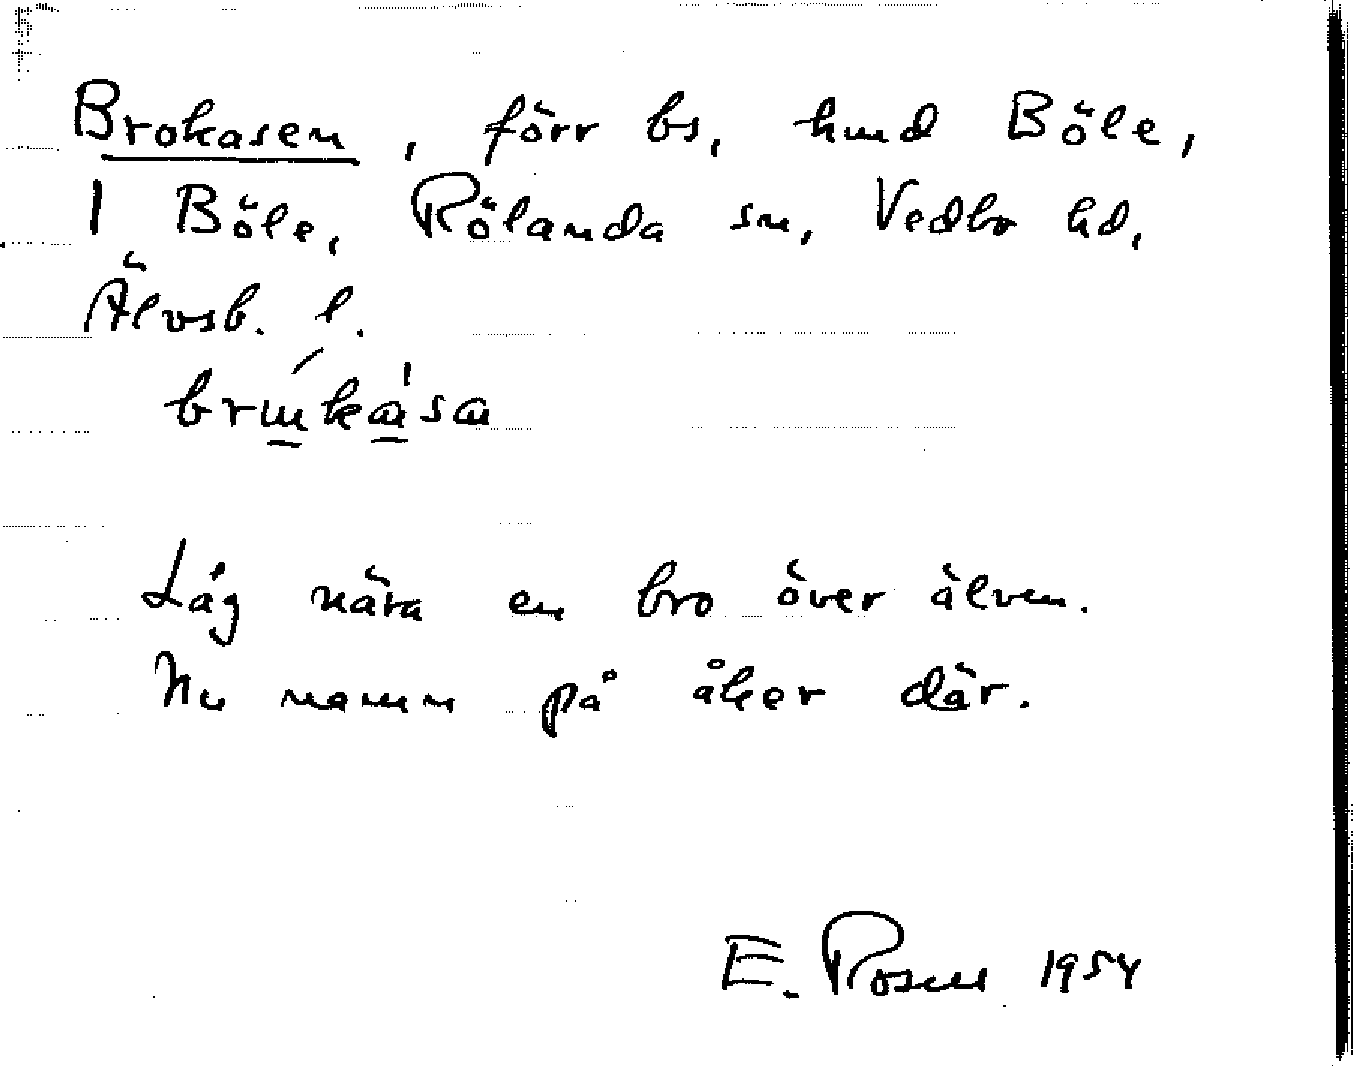 Brokasen, förr bs, hmd Böle,
1 Böle, Rölanda sn, Vedbo hd,
Älvsb. l.
Låg nära en bro över älven.
Nu namn på åker där.
E. Rosell 1954